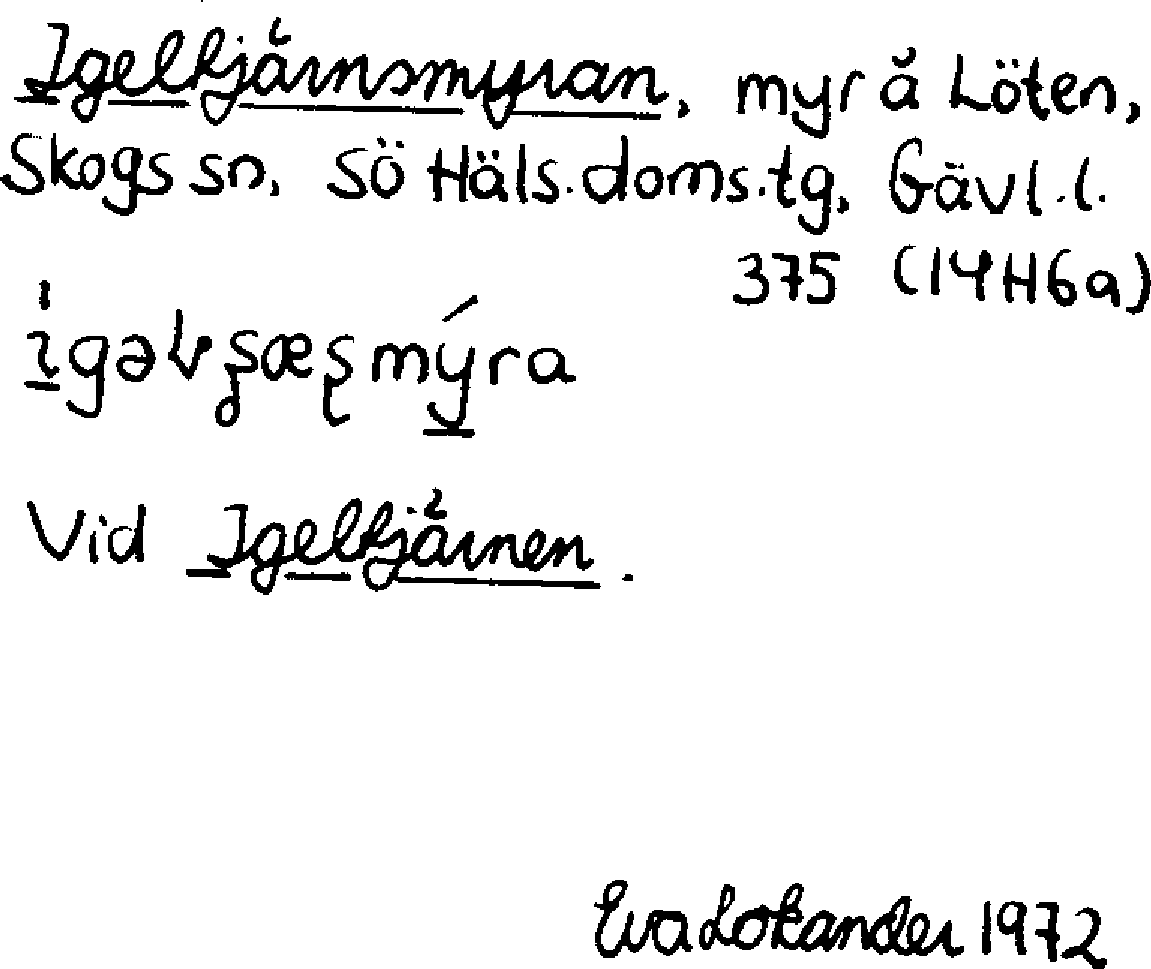 Igeltjärnsmyran, myr å Löten,
Skogs sn, Sö Häls. doms. tg, Gävl. l.
375 (14H6a)
Vid Igeltjärnen.
Eva Lokander 1972